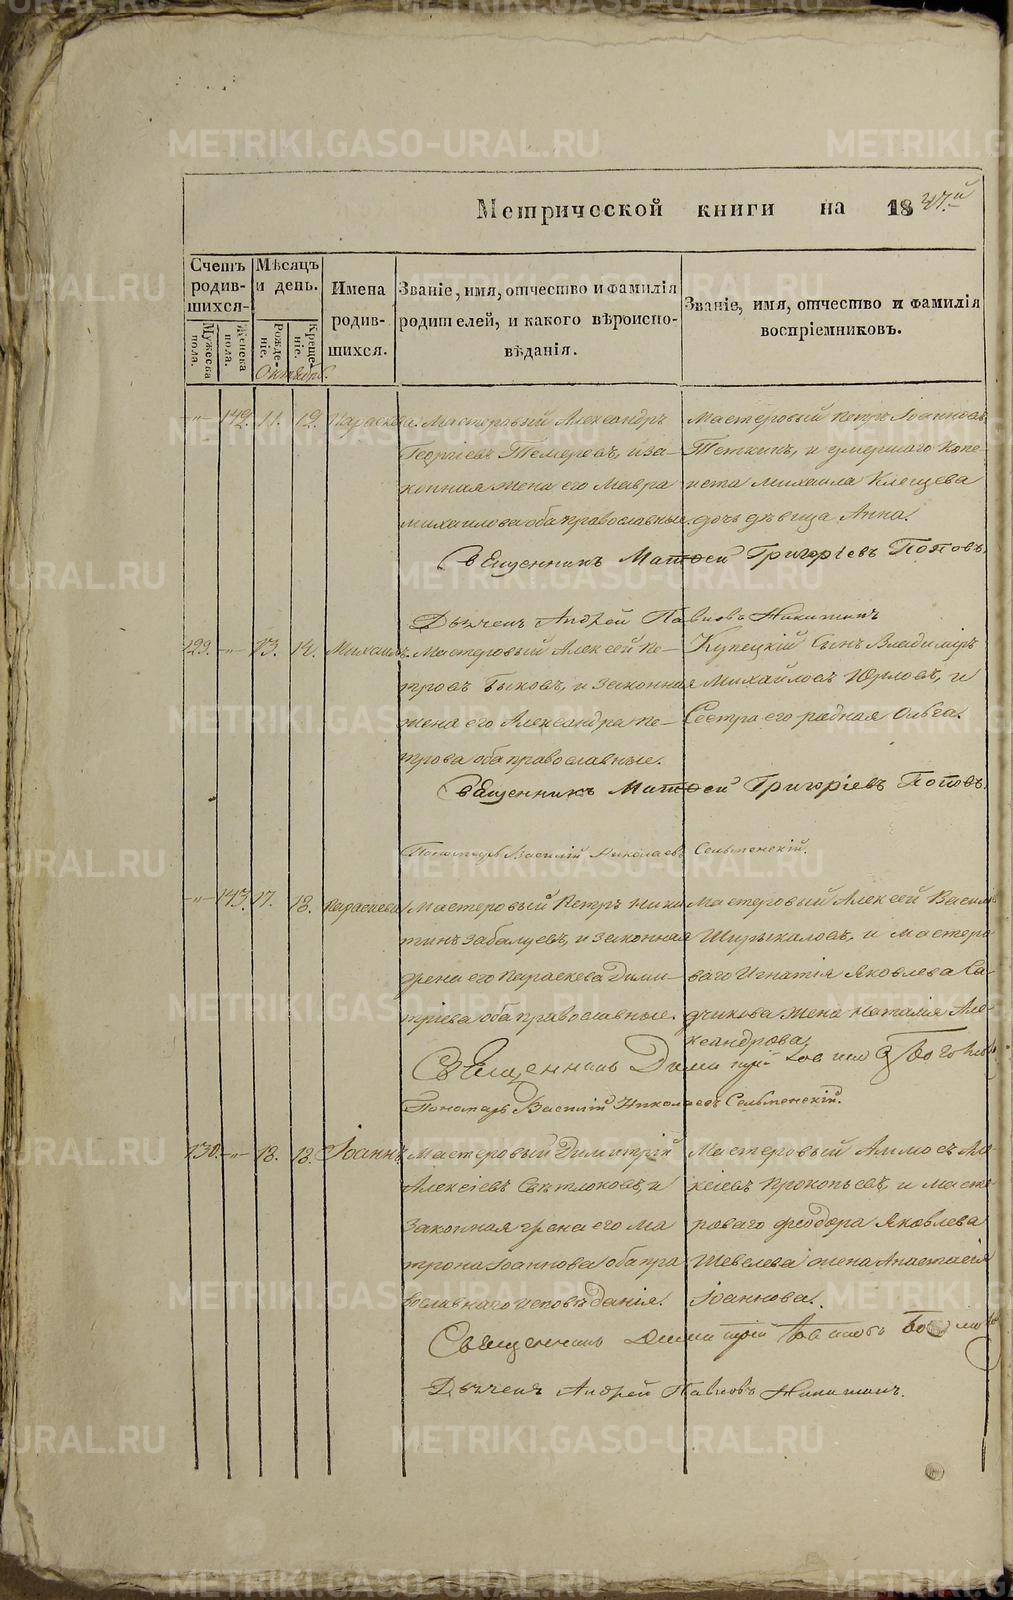 Метрической книги на 1847.й
Счетъ родившихся.
Мужеска пола.
Женска пола.
Мѣсяцъ и день.
Рожденіе.
Крещеніе.
Октябрь.
Имена родившихся.
Званіе, имя, отчество и фамилія
родителей, и какого вѣроиспо-
вѣданія.
Званіе, имя, отчество и фамилія
воспріемниковъ.
-"- 142. 11. 12. Параскева.
Мастеровый Александръ
Георгіевъ и за-
конная жена его Мавра
Михаилова оба православные.
Мастеровый Петръ Іоанновъ
Теткинъ, и умершаго Копе-
иста Михаила Клещева
дочь дѣвица Анна.
Священникъ Матѳей Григоріевъ Поповъ.
Дьячекъ Андрей Павловъ Никитинъ
129. -"- 13. 14. Михаилъ.
Мастеровый Алексей Пе-
тровъ Быковъ, и законная
жена его Александра Пе-
трова оба православные.
Купецкій Сынъ Владимиръ
Михайловъ Юрловъ, и
Сестра его родная Ольга.
Священникъ Матѳей Григоріевъ Поповъ.
Пономарь Василій Николаевъ Сельменскій.
-"- 143. 17. 18. Параскева
Мастеровый Петръ Ники
тинъ Забалуевъ, и законная
жена его Параскева Дими-
тріева оба православные.
Мастеровый Алексей Василь
Ширыкаловъ, и мастеро
ваго Игнатія Яковлева Са-
дчикова жена Наталія Але-
ксандрова.
Священникъ Димитрій
Пономарь Василій Николаевъ Сельменскій.
130. -"- 18. 18. Іоаннъ.
Мастеровый Димитрій
Алексіевъ Свѣтлоковъ, и
законная жена его Ма
трона Іоаннова оба пра
вославнаго исповѣданія.
Мастеровый Аммосъ Ало
ксіевъ Прокопьевъ, и масте
роваго Ѳеодора Яковлева
Шевелева жена Анастасія
Іоаннова.
Священникъ Димитрій
Дьячекъ Андрей Павловъ Никитинъ.
METRIKI.GASO-URAL.RU